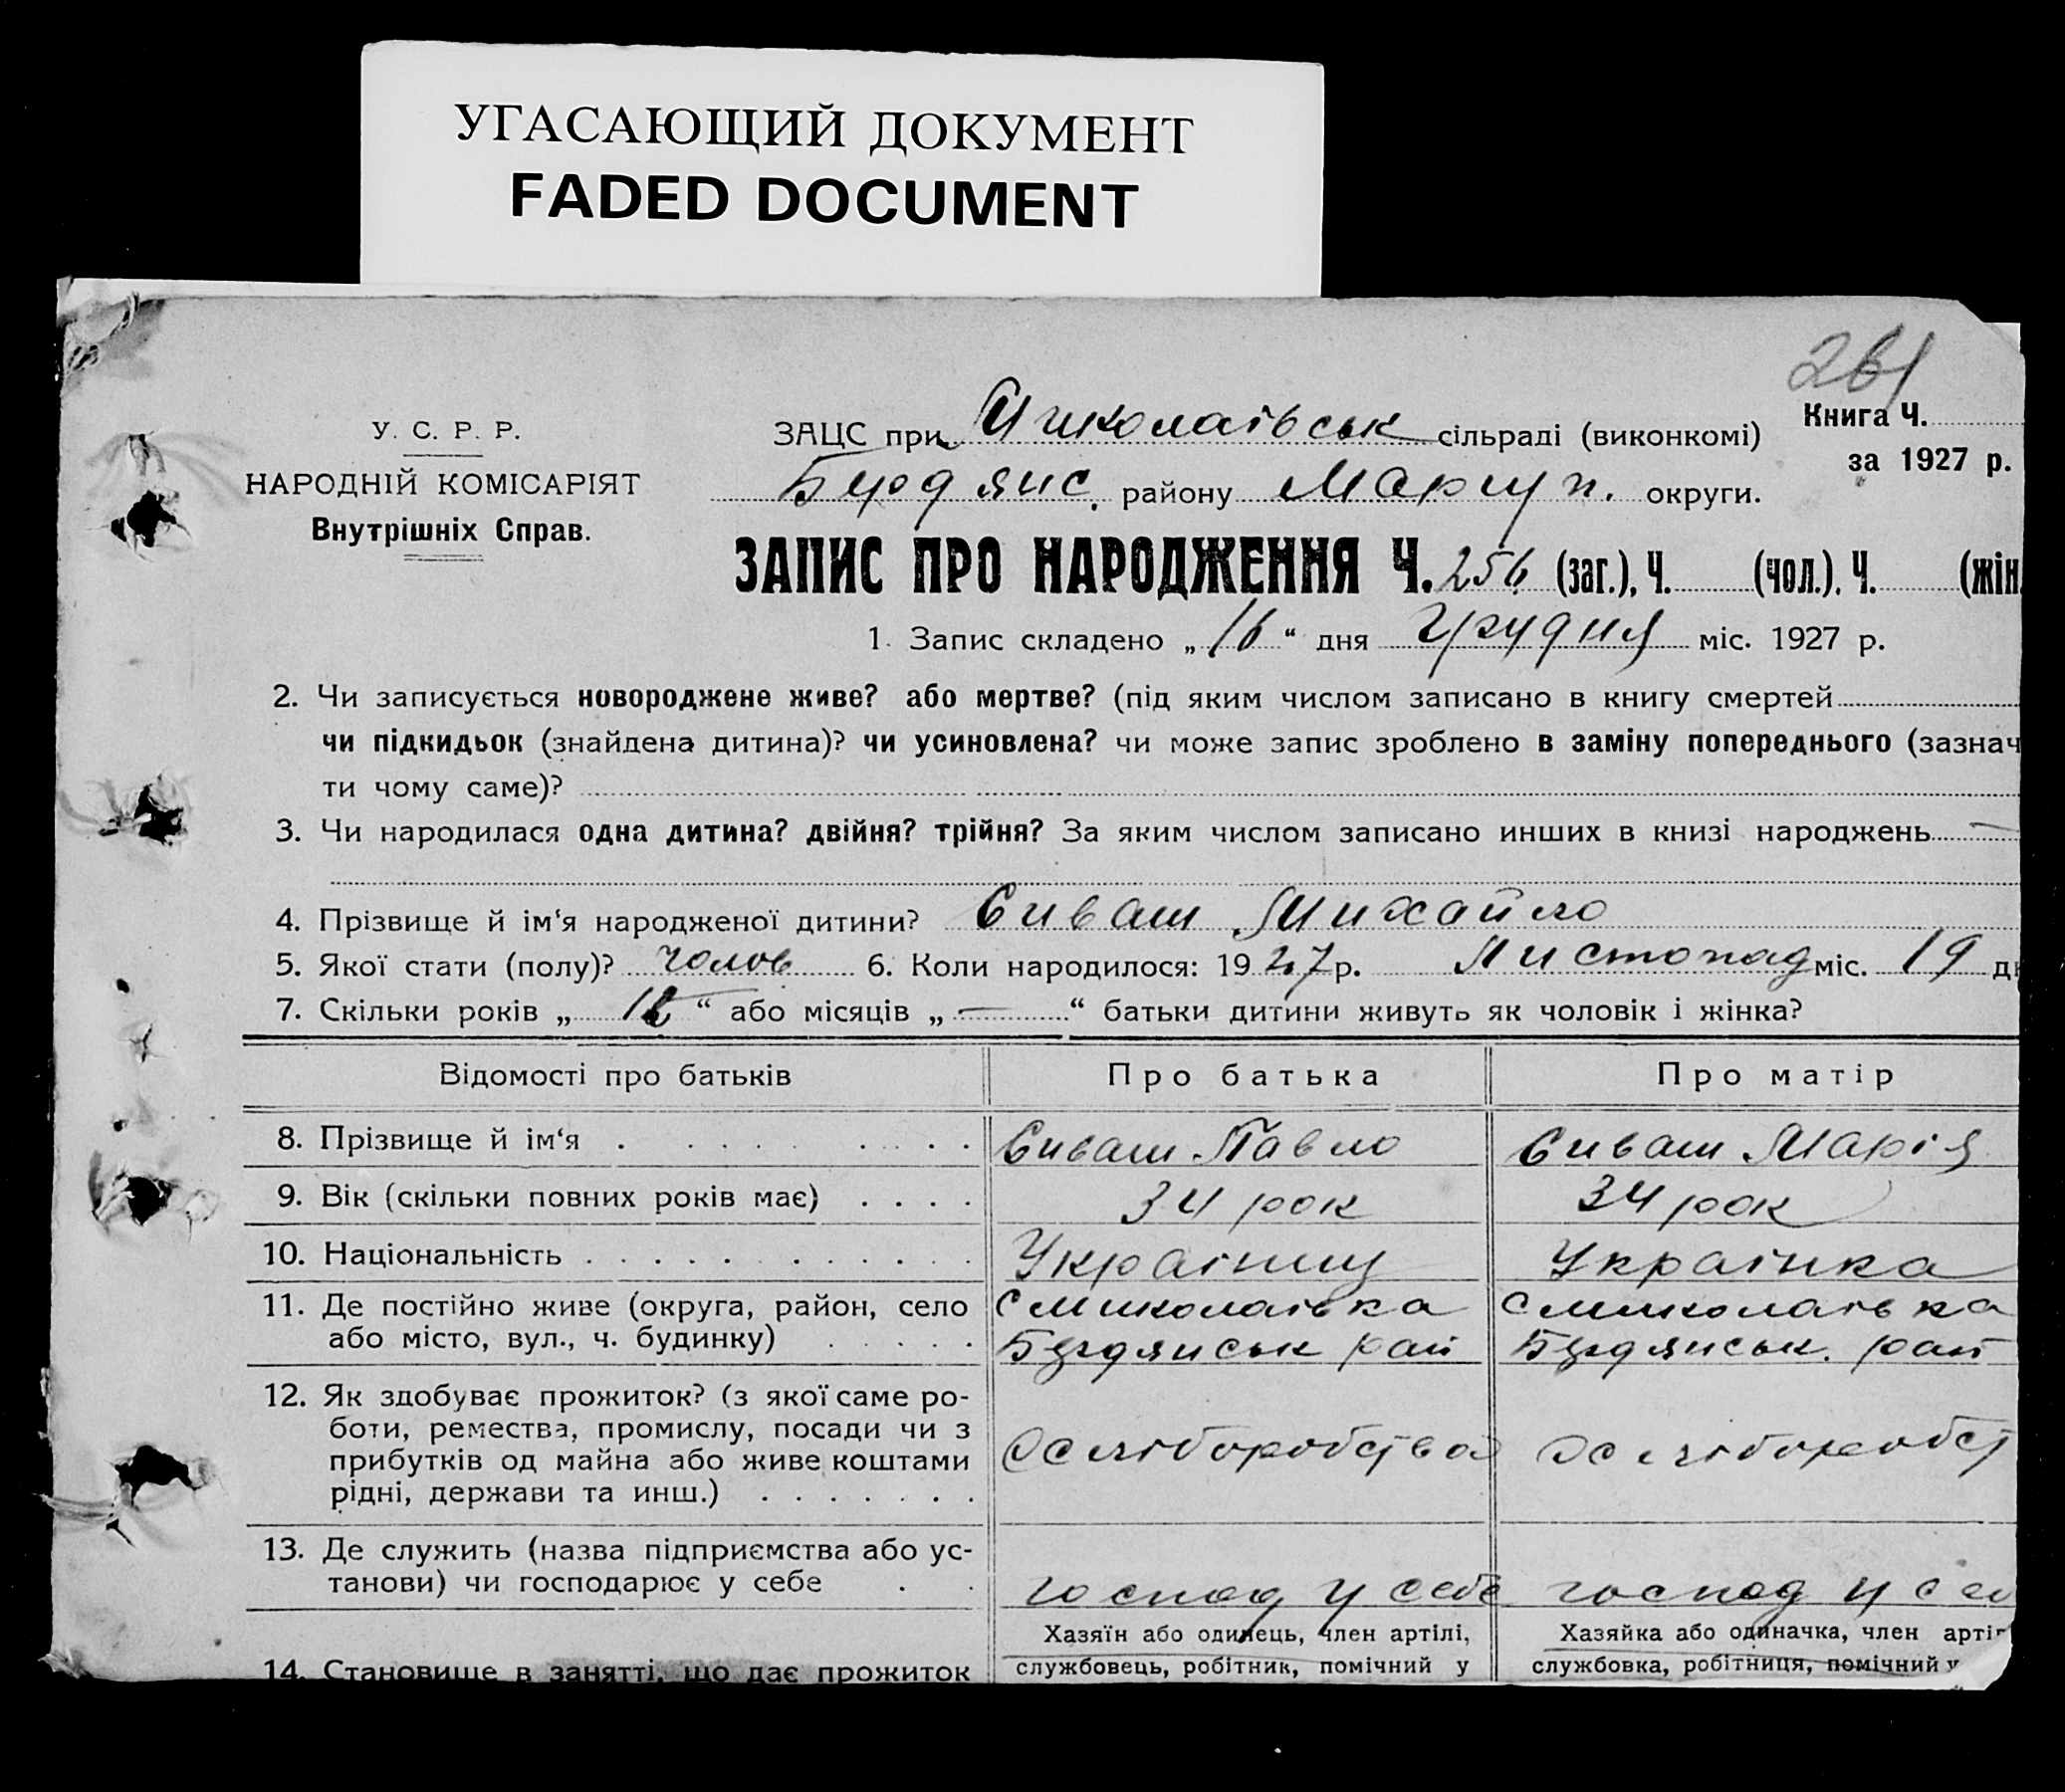 УГАСАЮЩИЙ ДОКУМЕНТ
FADED DOCUMENT
261
У. С. Р. Р.
НАРОДНІЙ КОМІСАРІЯТ
Внутрішніх Справ.
ЗАЦС при Миколаївськ сільраді (виконкомі)
Бердянс. району Маріуп. округи.
Книга Ч.
за 1927 р.
ЗАПИС ПРО НАРОДЖЕННЯ Ч. 256 (заг.), Ч. (чол.), Ч. (жін.
1. Запис складено „16“ дня грудня міс. 1927 р.
2. Чи записується новороджене живе? або мертве? (під яким числом записано в книгу смертей
чи підкидьок (знайдена дитина)? чи усиновлена? чи може запис зроблено в заміну попереднього (зазнач
ти чому саме)?
3. Чи народилася одна дитина? двійня? трійня? За яким числом записано инших в книзі народжень —
4. Прізвище й ім‘я народженої дитини? Сиваш Михайло
5. Якої стати (полу)? чолов 6. Коли народилося: 1927 р. Листопад міс. 19 д
7. Скільки років „12“ або місяців „—“ батьки дитини живуть як чоловік і жінка?
Відомості про батьків Про батька Про матір
8. Прізвище й ім‘я . . . . . . . . Сиваш Павло Сиваш Марія
9. Вік (скільки повних років має) . . . . 34 рок 34 рок
10. Національність . . . . . . . . . . . Українц Українка
11. Де постійно живе (округа, район, село с Миколаівка с Миколаівка
або місто, вул., ч. будинку) . . . . . Бердянськ рай Бердянськ. рай
12. Як здобуває прожиток? (з якої саме ро-
боти, ремества, промислу, посади чи з
прибутків од майна або живе коштами
рідні, держави та инш.) . . . . . . .
13. Де служить (назва підприємства або ус-
танови) чи господарює у себе . . господ у себе господ у себ
Хазяїн або одинець, член артілі, Хазяйка або одиначка, член арті
14. Становище в занятті, що дає прожиток службовець, робітник, помічний у службовка, робітниця, помічний у